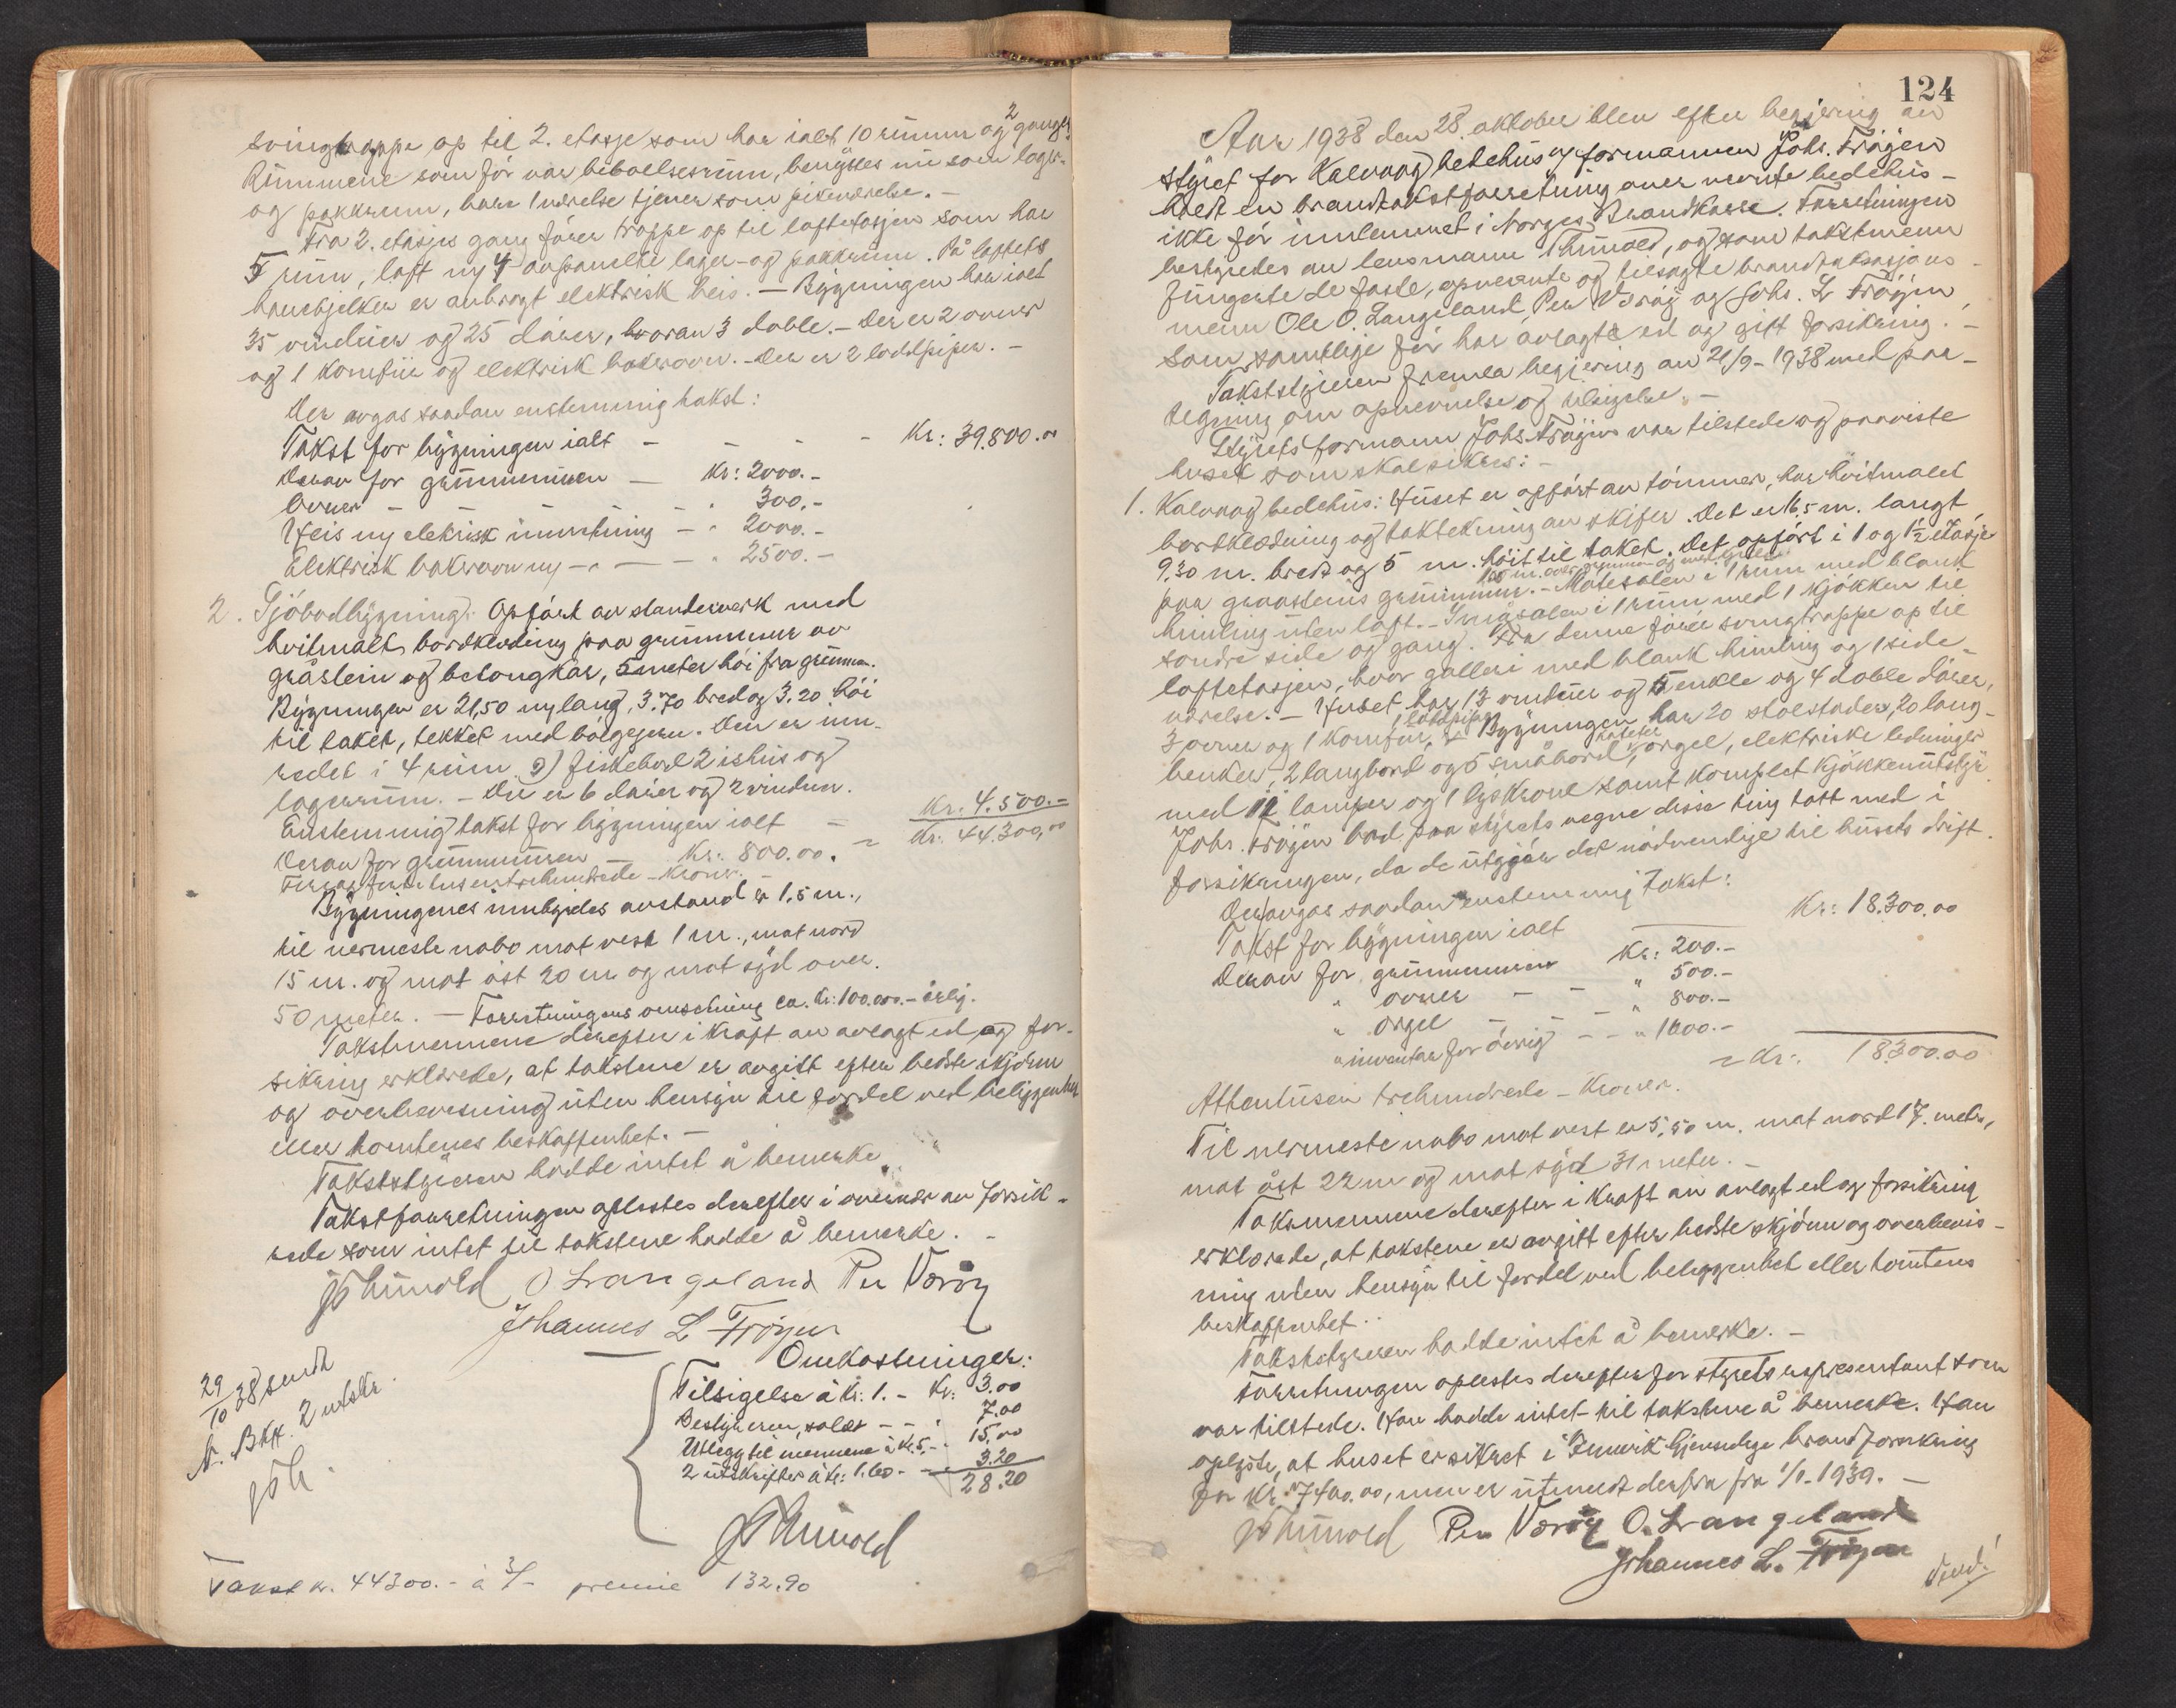 svingtrappe op til 2. etasje som har ialt 10 rumm og 2 ganger.
Rummene som för var beboelsesrum, benyttes nu som lager-
og pakkrum, bare 1 værelse tjener som pikeværelse. -
Fra 2. etasjes gang förer trappe op til loftetasjen som har
5 rum, loft og 4 avpanelte lager- og pakkrum. På loftets
hanebjelker er anbragt elektrisk heis. - Bygningen har ialt
35 vinduer og 25 dörer, hvorav 3 doble. - Der er 2 ovner
og 1 komfur og elektrisk bakerovn. - Der er 2 loddpiper. -
Der avgas saadan enstemmig takst:
Takst for bygningen ialt - - - - Kr: 39.800.00
Derav for grunnmuren - Kr: 2000.-
Ovner - - - - " 300.-
Heis og elektrisk innretning - " 2000.-
Elektrisk bakerovn ny - " - " 2500.-
2. Sjöbodbygning: Opfört av standerverk med
hvitmalt bordkledning paa grunnmur av
gråstein og betongkar, 5 meter höi fra grunnen.
Bygningen er 21,50 m lang, 3.70 bred og 3.20 höi
til taket, tekket med bölgejern. Den er inn-
redet i 4 rum fiskebod 2 ishus og
lagerrum. - Der er 6 dörer og 2 vinduer.
Enstemmig takst for bygningen ialt - Kr: 4.500.-
Derav for grunnmuren - Kr: 800.00. = Kr: 44.300,00
Firtifiretusentrehundrede - Kroner. -
Bygningenes innbyrdes avstand er 1,5 m.,
til nermeste nabo mot vest 1 m., mot nord
15 m. og mot öst 20 m og mot syd over
50 meter. - Forretningens omsetning ca. Kr: 100.000.- årlig.
Takstmennene derefter i kraft av avlagt ed og for-
sikring erklærede, at takstene er avgitt efter bedste skjönn
og overbevisning uten hensyn til fordel ved beliggenhet
eller tomtenes beskaffenhet. -
Takststyreren hadde intet å bemerke.
Takstforretningen oplestes derefter i overvær av forsik-
rede som intet til takstene hadde å bemerke. -
O Langeland Per Veröy
Johannes L Fröyen
29/10 38 sendt
N. Bkk. 2 utskr.
Omkostninger:
Tilsigelse á Kr: 1. - Kr: 3.00
Bestyreren, salær - - " 7.00
Utlegg til mennene á Kr. 5,- " 15.00
2 utskrifter á kr: 1.60 - - 3.20
28.20
Takst kr. 44300.- à 3/- premie 132.90
124
Aar 1938 den 28. oktober blev efter begjering av
styret for Kalvaag bedehus v/ formannen Johs. Fröyen
holdt en brandtakstforretning over nevnte bedehus -
ikke för innlemmet i Norges Brandkasse. Forretningen
bestyredes av lensmann Thunold, og som takstmenn
fungerte de faste, opnevnte og tilsagte brandtaksasjons-
menn Ole O. Langeland, Per Veröy og Johs. L Fröyen,
som samtlige för har avlagt ed og gitt forsikring. -
Takststyreren fremla begjering av 21/9 - 1938 med paa-
tegning om opnevnelse og tilsigelse. -
Styrets formann Johs. Fröyen var tilstede og paaviste
huset som skal sikres: -
1. Kalvaag bedehus: Huset er opfört av tömmer, har hvitmalet
bordklædning og taktekning av skifer. Det er 16,5 m. langt
9,30 m. bredt og 5 m. höit til taket. Det opfört i 1 og 1½ etasje
paa graasteins grunnmur. - Møtesalen i 1 rum med blank
himling uten loft. - Småsalen i 1 rum med 1 kjökken til
söndre side og gang. Fra denne förer svingtrappe op til
loftetasjen, hvor galleri med blank himling og 1 side-
værelse. - Huset har 13 vinduer og 5 enkle og 4 doble dörer,
3 ovner og 1 komfur, 1 loddpipe. Bygningen har 20 stolestader, 20 lang-
benker, 2 langbord og 5 småbord, orgel, elektriske ledninger
med 11 lamper og 1 lyskrone samt komplet kjökkenutstyr.
Johs. Fröyen bad paa styrets vegne disse ting tatt med i
forsikringen, da de utgjör det nödvendige til husets drift.
Der avgas saadan enstemmig takst:
Takst for bygningen ialt Kr: 18.300,00
Derav for grunnmuren Kr: 200.-
" ovner - - " 500.-
" orgel - - " 800.-
" inventar for övrig - - " 1600.-
= Kr: 18.300.00
Attentusen trehundrede - Kroner.
Til nermeste nabo mot vest er 5,50 m. mot nord 17. meter,
mot öst 22 m og mot syd 31 meter. -
Taksmennene derefter i kraft av avlagt ed og forsikring
erklærede, at takstene er avgitt efter bedste skjönn og overbevis-
ning uten hensyn til fordel ved beliggenhet eller tomtens
beskaffenhet.
Takststyreren hadde intet å bemerke. -
Forretningen oplestes derefter for styrets representant som
var tilstede. Han hadde intet til takstene å bemerke. Han
oplyste, at huset er sikret i Innvik gjensidige brandforsikring
for Kr: 7400.00, men er utmeldt derfra fra 1/1 - 1939. -
Per Veröy O. Langeland
Johannes L. Fröyen